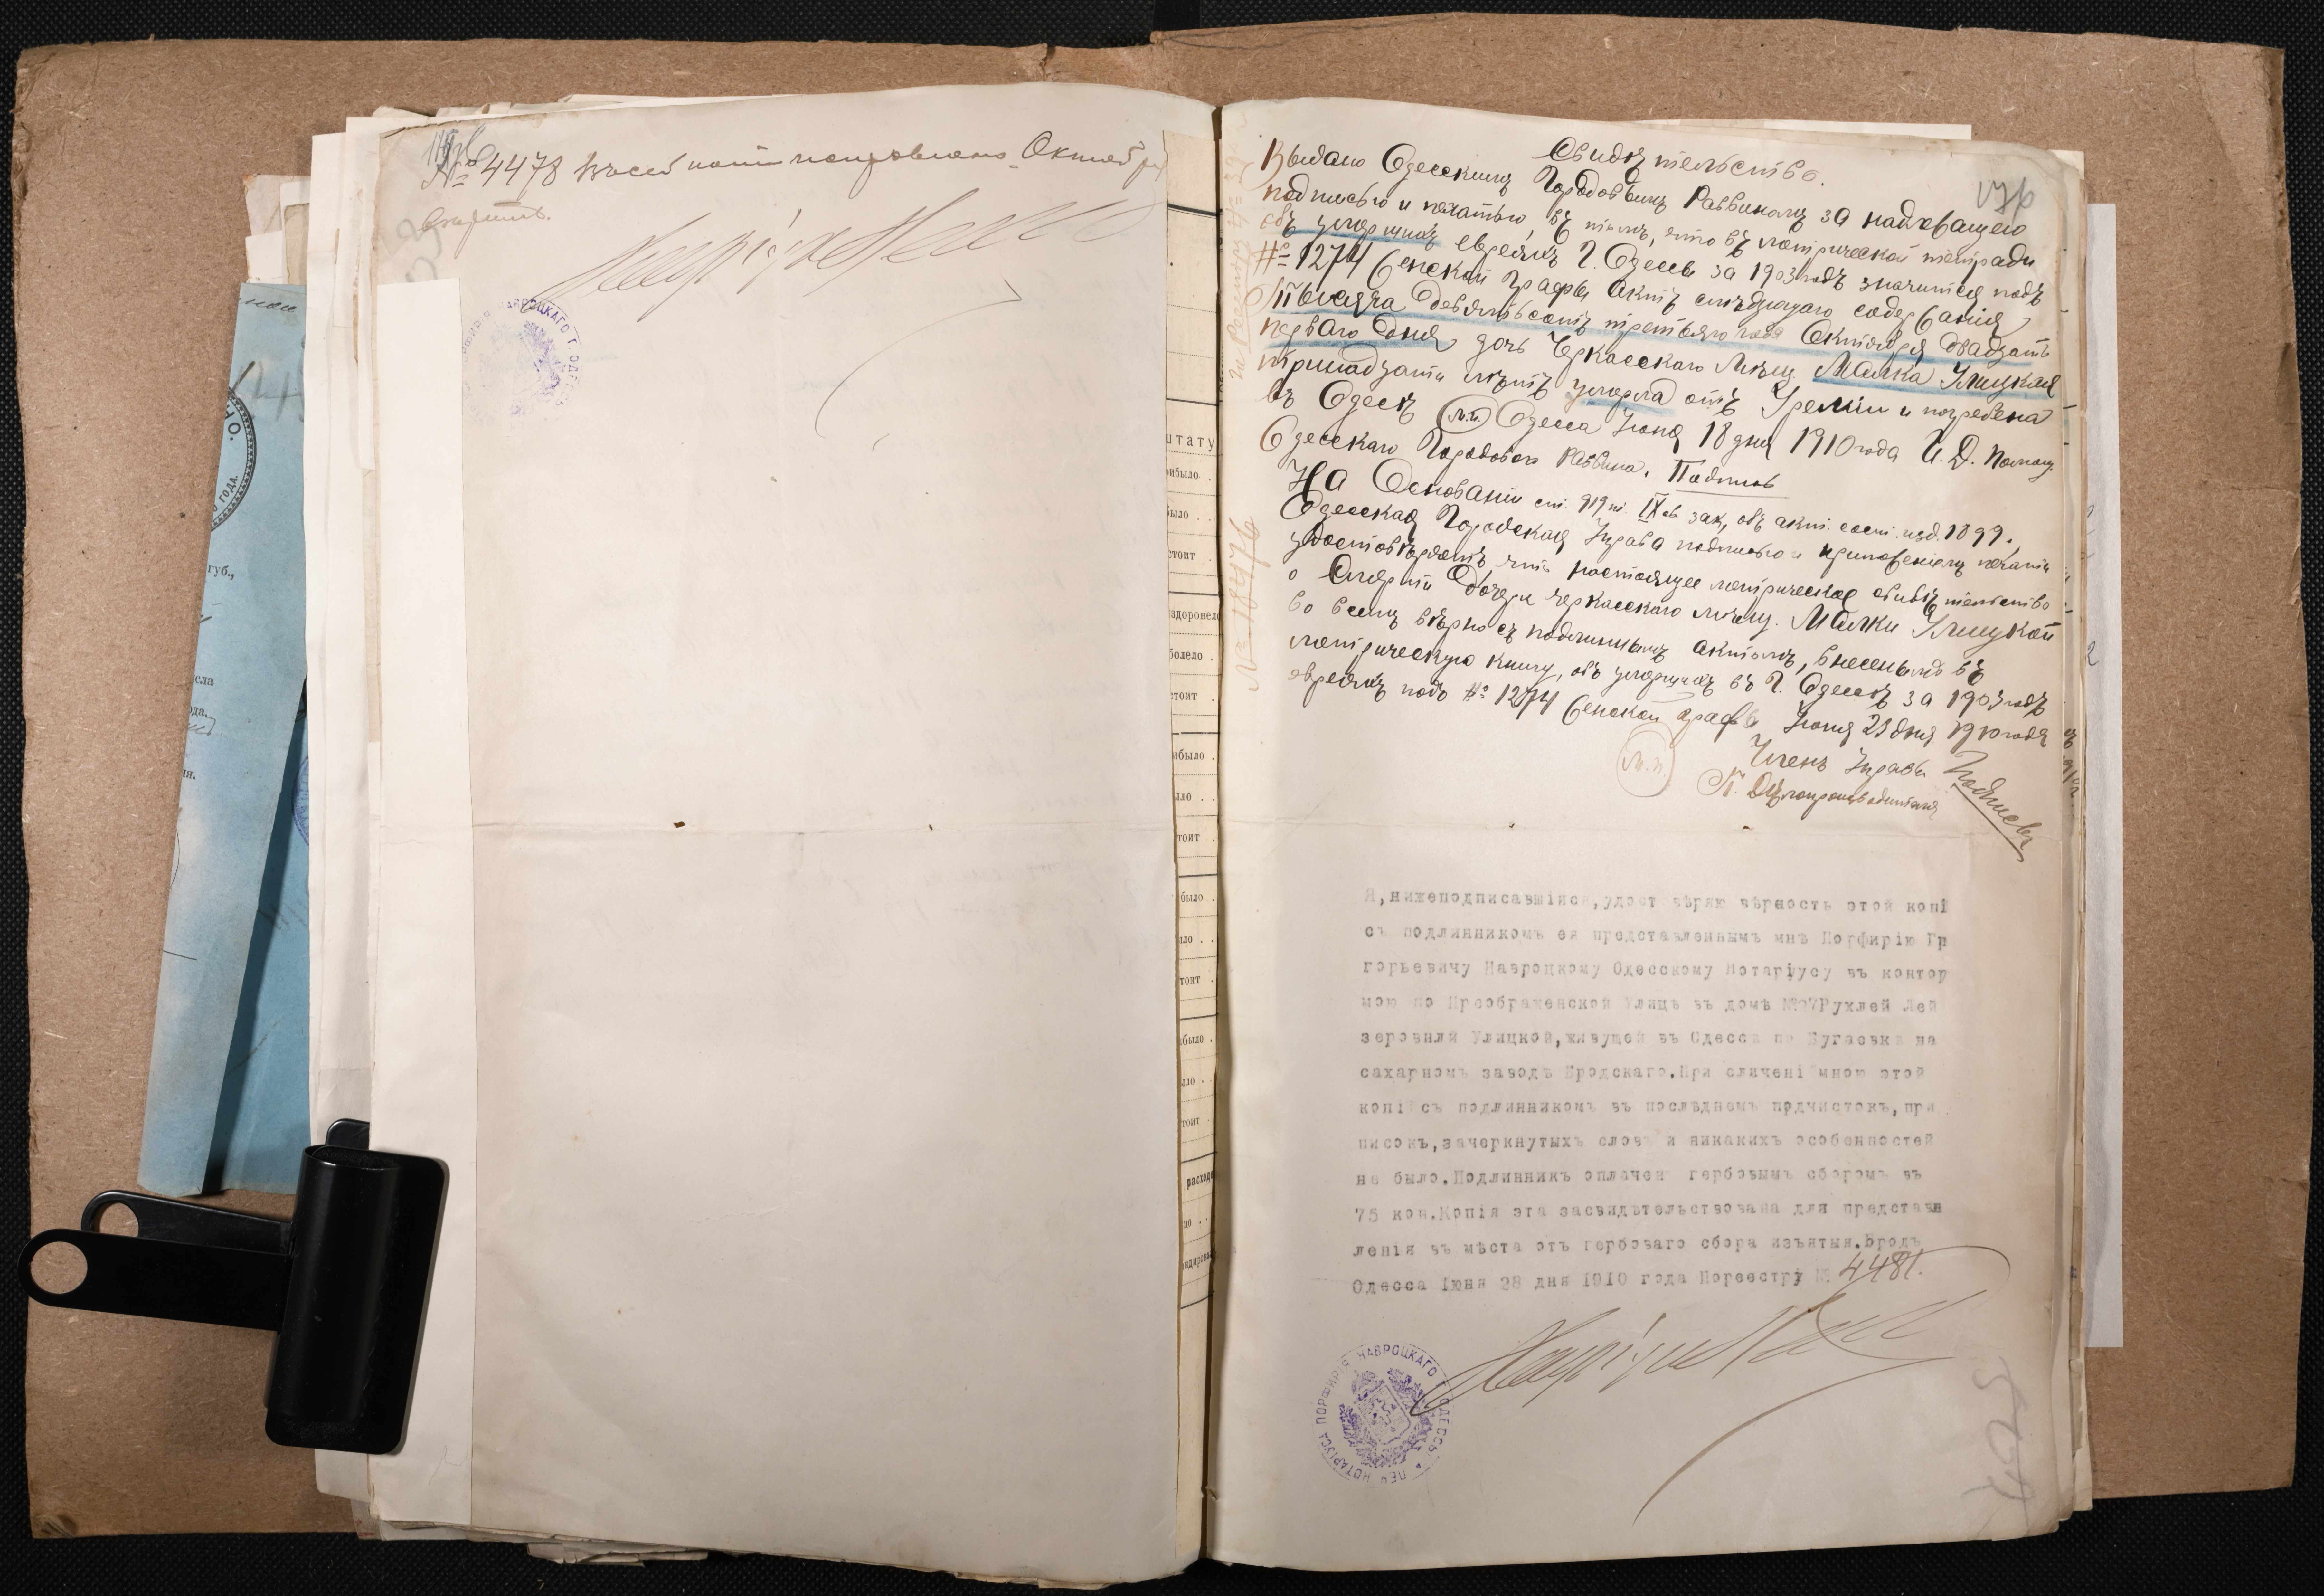 № 4478
НАВРОЦКАГО Г. ОДЕСС
О.
ГОДА.
губ.,
сла
да.
штату
рибыло
было . .
стоит
здоровело
болело .
стоит
ибыло .
ыло . .
тоит
было .
ыло . .
тоит
было .
ыло . .
тоит
расход
Свидѣтельство.
Выдано Одесскимъ Городовымъ Раввиномъ за надлежащею
подписью и печатью, въ томъ, что въ метрической тетради
объ умершихъ евреяхъ г. Одессы за 1903 годъ значится подъ
№ 1274 женской графы актъ слѣдующаго содержанія
Тысяча девятьсотъ третьяго года Октября двадцать
перваго дня дочь Черкасскаго мѣщ. Малка Улицкая
тринадцати лѣтъ умерла отъ Уреміи и погребена
въ Одессѣ (М.П.) Одесса Іюня 18 дня 1910 года И. Д. Помощ.
Одесскаго Городового Раввина. Подпись
На Основаніи ст. 919 т. IX св зак, объ акт. сост. изд. 1899.
Одесская Городская Управа подписью и приложеніемъ печати
удостовѣряетъ, что настоящее метрическое свидѣтельство
о Смерти дочери черкасскаго мѣщ. Малки Улицкой
во всемъ вѣрно съ подлиннымъ актомъ, внесенымъ въ
метрическую книгу, объ умершихъ въ г. Одессѣ за 1903 годъ
евреяхъ подъ № 1274 женской графы Іюня 23 дня 1910 года
Членъ Управы
М.П.
П. Дѣлопроизводителя
Подписи
№ 18476
Я,нижеподписавшійся,удостовѣряю вѣрность этой копі
съ подлинникомъ ея представленнымъ мнѣ Порфирію Гр
горьевичу Навроцкому Одесскому Нотаріусу въ контор
мою по Преображенской Улицѣ въ домѣ №97 Рухлей Лей
зеровной Улицкой,живущей въ Одессѣ по Бугаевкѣ на
сахарномъ заводѣ Бродскаго.При сличеніи мною этой
копіи съ подлинникомъ въ послѣднемъ подчистокъ,при
писокъ,зачеркнутыхъ словъ и никакихъ особенностей
не было.Подлинникъ оплаченъ гербовымъ сборомъ въ
75 коп.Копія эта засвидѣтельствована для представ
ленія въ мѣста отъ гербоваго сбора изъятыя.
Одесса Іюня 28 дня 1910 года Пореестру № 4481.
ПЕЧ НОТАРІУСА ПОРФИРІЯ НАВРОЦКАГО Г. ОДЕССЫ